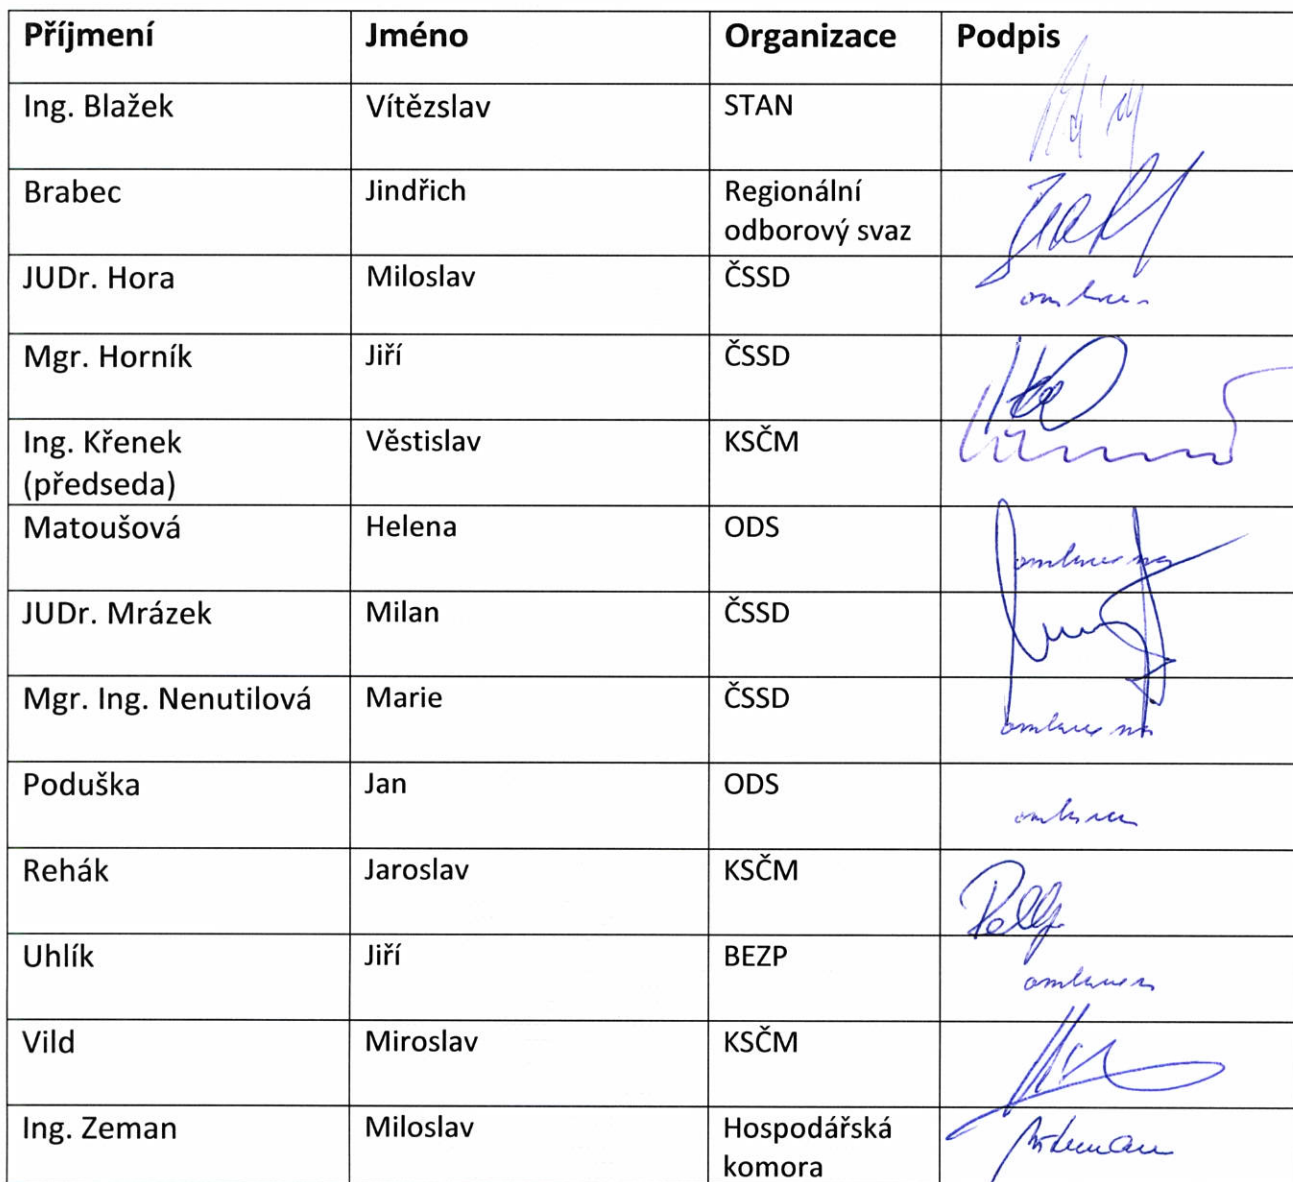 Příjmení Jméno Organizace Podpis
Ing. Blažek Vítězslav STAN
Brabec Jindřich Regionální
odborový svaz
JUDr. Hora Miloslav ČSSD
Mgr. Horník Jiří ČSSD
Ing. Křenek Věstislav KSČM
(předseda)
Matoušová Helena ODS
omluvena
JUDr. Mrázek Milan ČSSD
Mgr. Ing. Nenutilová Marie ČSSD
omluvena
Poduška Jan ODS
omluven
Rehák Jaroslav KSČM
Uhlík Jiří BEZP
omluven
Vild Miroslav KSČM
Ing. Zeman Miloslav Hospodářská
komora